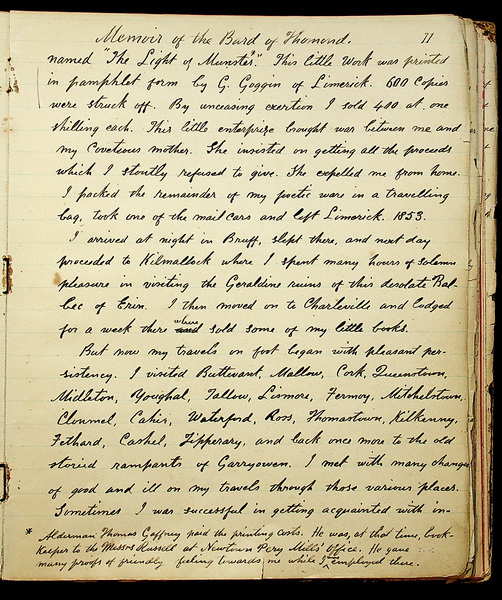 Memoir of the Bard of Thomond. 71
named "The Light of Munster*." This little Work was printed
in pamphlet form by G. Goggin of Limerick. 600 Copies
were struck off. By unceasing exertion I sold 400 at one
shilling each. This little enterprize brought war between me and
my Coveteous mother. She insisted on getting all the proceeds
which I stoutly refused to give. She expelled me from home.
I packed the remainder of my poetic ware in a travelling
bag, took one of the mail cars and left Limerick. 1853.
I arrived at night in Bruff, slept there, and next day
proceeded to Kilmallock where I spent many hours of solemn
pleasure in visiting the Geraldine ruins of this desolate Bal-
bec of Erin. I then moved on to Charleville and lodged
for a week there where sold some of my little books.
But now my travels on foot began with pleasant per-
sistency. I visited Buttevant, Mallow, Cork, Queenstown,
Midleton, Youghal, Tallow, Lismore, Fermoy, Mitchelstown,
Clonmel, Cahir, Waterford, Ross, Thomastown, Kilkenny,
Fethard, Cashel, Tipperary, and back once more to the old
storied ramparts of Garryowen. I met with many changes
of good and ill on my travels through those various places.
Sometimes I was successful in getting acquainted with en-
* Alderman Thomas Gaffney paid the printing costs. He was, at that time, book-
keeper to the Messrs Russell at Newtown Pery Mills' Office. He gave
many proofs of friendly feeling towards me while I employed there.